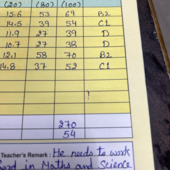 (20) (80) (100)
15.6 53 69 B2
14.5 39 54 C1
11.9 27 39 D
10.7 27 38 D
12.1 58 70 B2
14.8 37 52 C1
270
54
Teacher's Remark : He needs to work
hard in Maths and Science